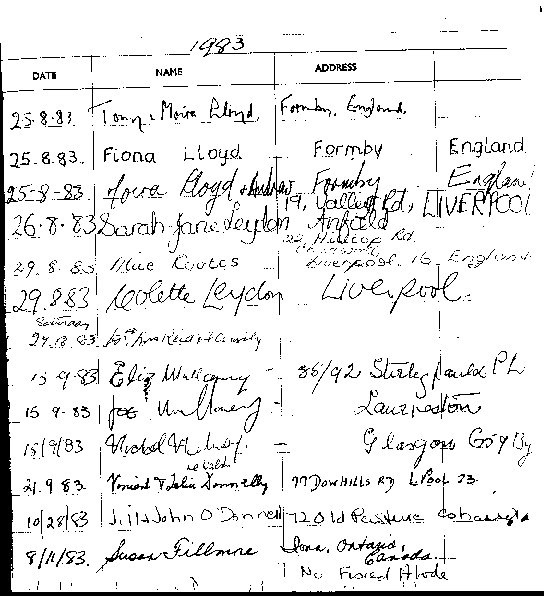 1983
DATE NAME ADDRESS
25.8.83 Tony & Moira Lloyd, Formby, England.
25.8.83. Fiona Lloyd Formby England
25-8-83. Lloyd + Andrew Formby England
26.8.83 Sarah Jane Leydon 19, Valley Rd, Anfield LIVERPOOL
22 Hilltop Rd.
29.8.83 Liverpool 16 England
29.8.83 Colette Leydon Liverpool.
Saturday
83 & family
15.9.83 Eliz Mullaney 86/92 PL
15.9.83 Joe Mullaney Laurieston
15/9/83 Glasgow
21.9.83 Vincent & Delia Donnelly 77 Dowhills Rd LPool 23.
10/28/83 Jill & John O'Donnell 72 Old
8/11/83. Susan Fillmore Iona, Ontario, Canada.
No Fixed Abode